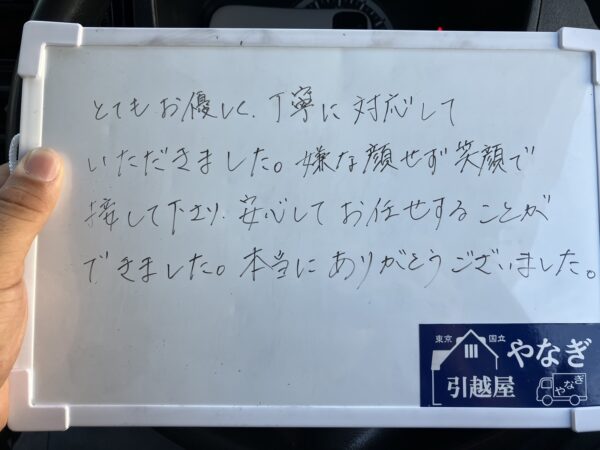 とてもお優しく、丁寧に対応して
いただきました。嫌な顔せず笑顔で
接して下さり、安心してお任せすることが
できました。本当にありがとうございました。
東京 国立
やなぎ
引越屋
やなぎ